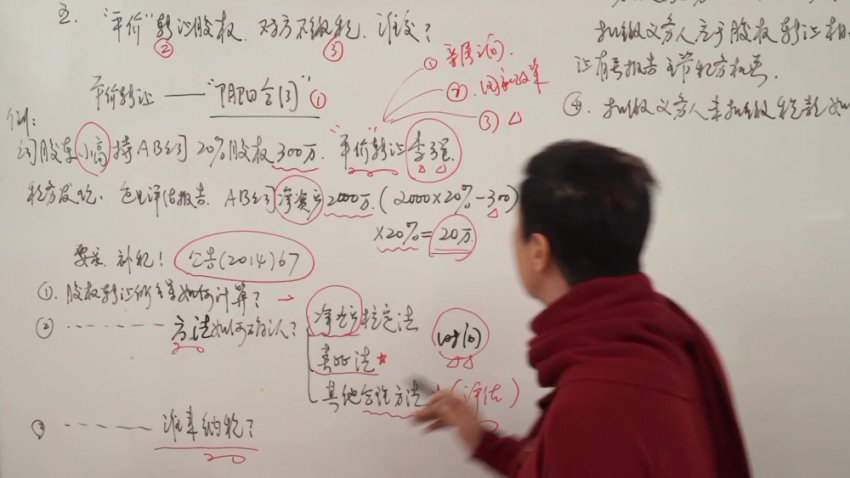 五. "平价"转让股权. 对方不缴税. 谁交?
② ③
平价转让 —— "阴阳合同" ①
① 亲属之间.
②. 国家政策
③ △
例:
公司股东小高持AB公司20%股权300万. "平价"转让李强.
税务发现. 出具评估报告. AB公司净资产2000万. (2000×20%-300)
×20%=20万
要求补税! 公告(2014)67
①. 股权转让所得如何计算?
② ------- 方法如何确认? 净资产核定法
类比法
其他合理方法 (评估)
③ ------- 谁来纳税?
扣缴义务人应于股权转让相
让有关报告主管税务机关.
④. 扣缴义务人未扣缴税款如